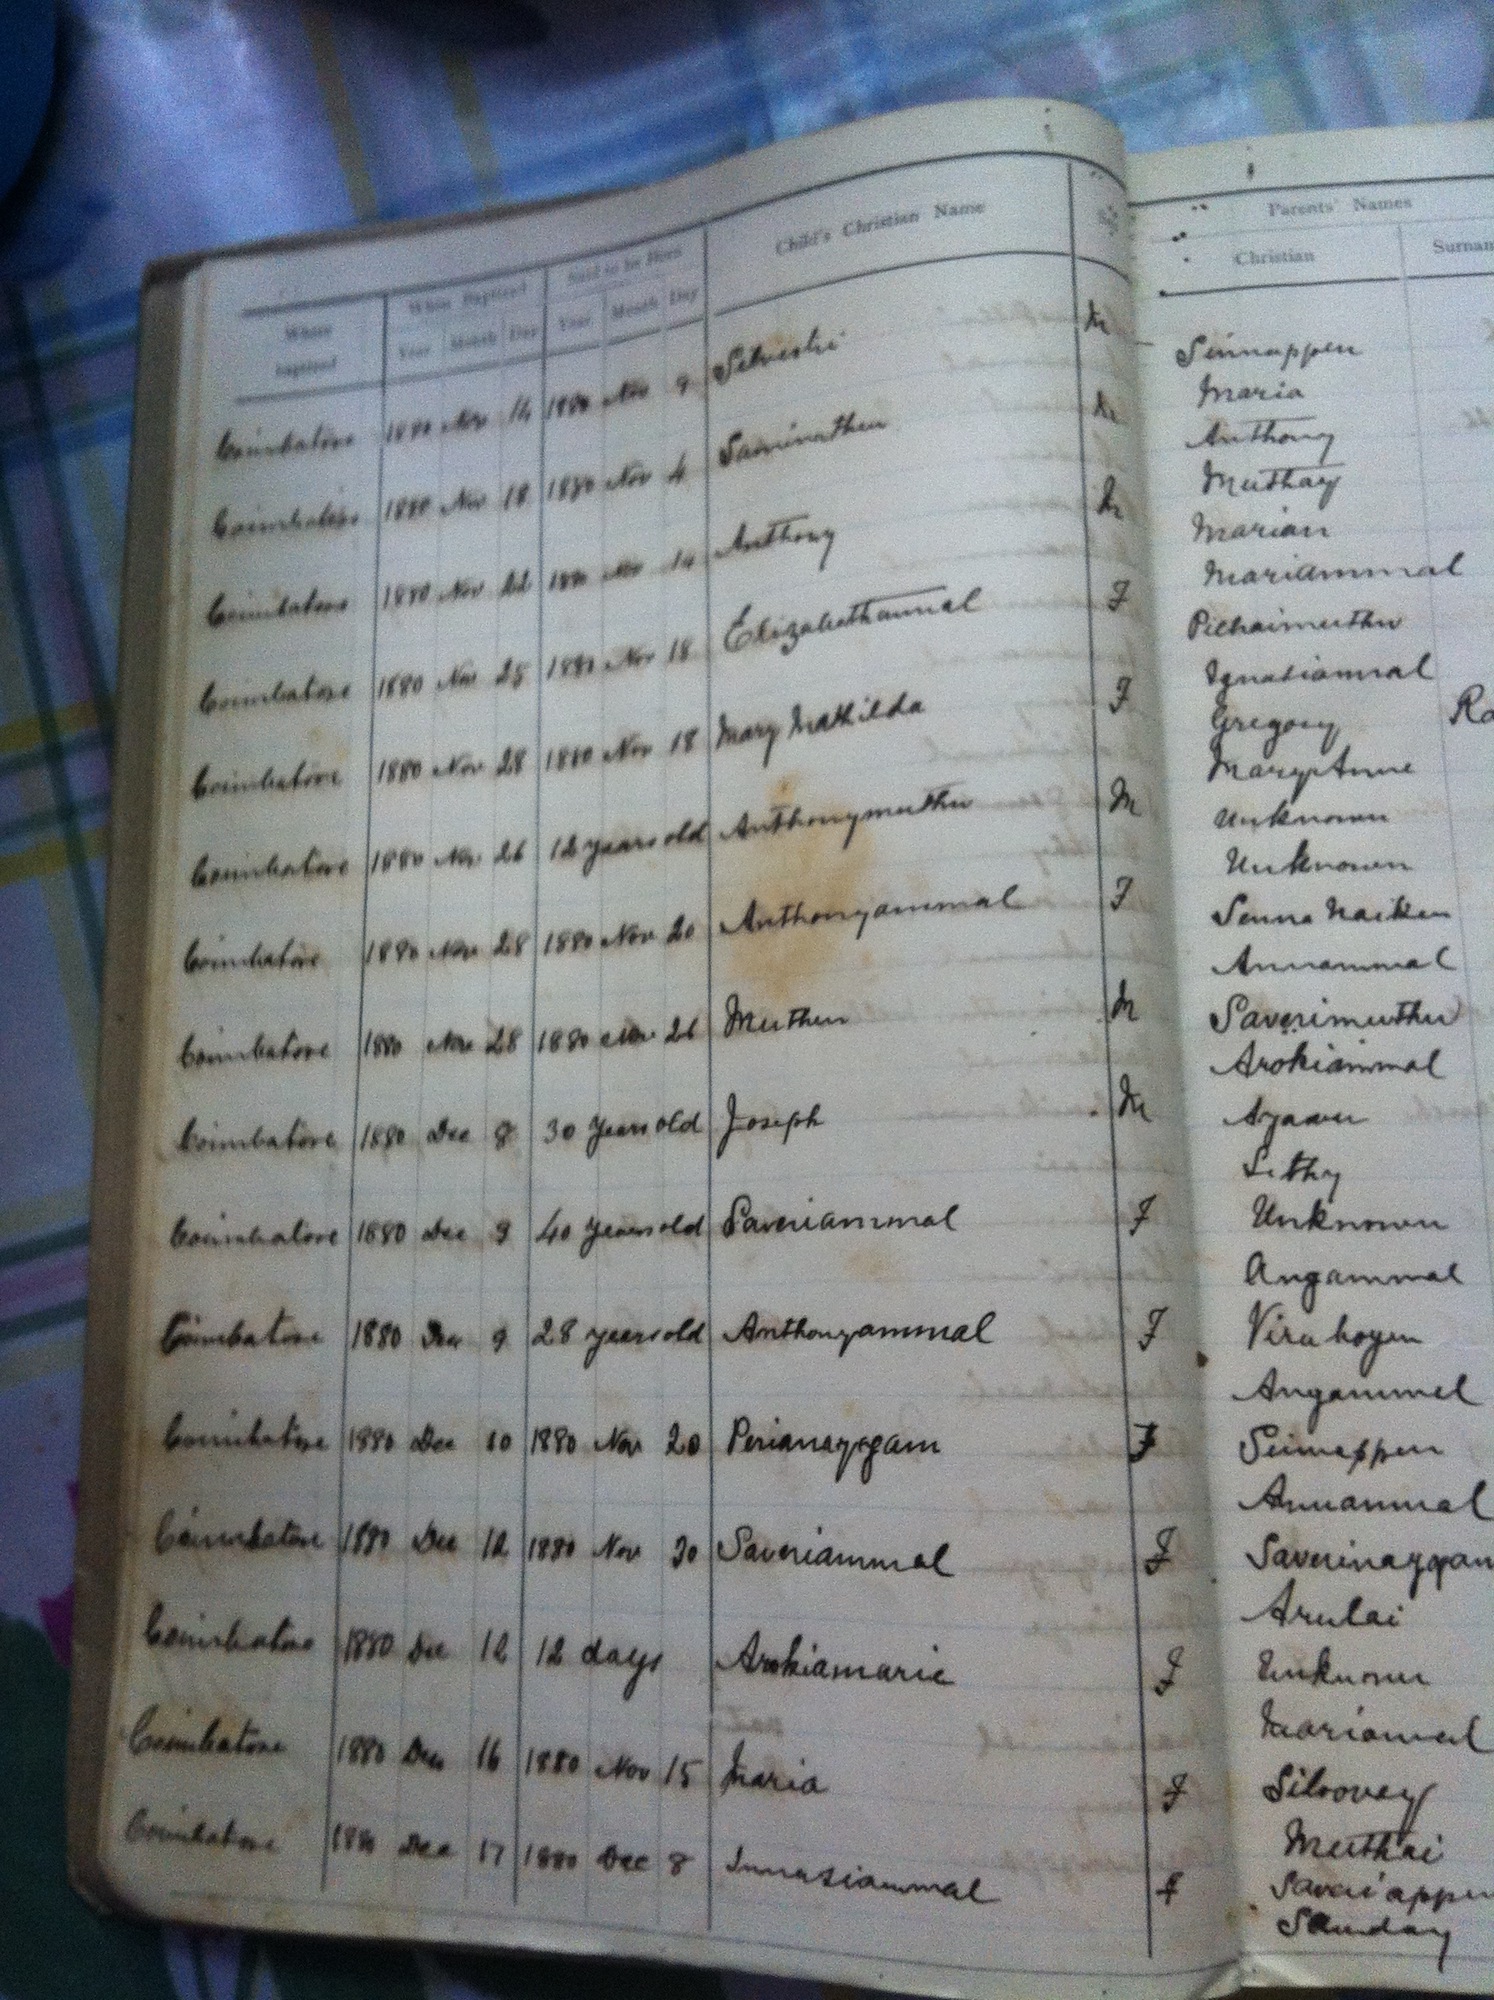 Where baptized When Baptized Said to be Born Child's Christian Name Sex Parents' Names
Year Month Day Year Month Day Christian Surnam
Coimbatore 1880 Nov 14 1880 Nov 9 Silvestri M Sinnappen
Maria
Coimbatore 1880 Nov 18 1880 Nov 4 Saminathen M Anthony
Muthay
Coimbatore 1880 Nov 22 1880 Nov 14 Anthony M Marian
Mariammal
Coimbatore 1880 Nov 25 1880 Nov 18 Elizabethammal F Pichaimuthu
Ignasiammal
Coimbatore 1880 Nov 28 1880 Nov 18 Mary Mathilda F Gregory Ro
Mary Anne
Coimbatore 1880 Nov 26 12 years old Anthonymuthu M Unknown
Unknown
Coimbatore 1880 Nov 28 1880 Nov 20 Anthonyammal F Senna Naiken
Annammal
Coimbatore 1880 Nov 28 1880 Nov 26 Muthen M Saverimuthu
Arokiammal
Coimbatore 1880 Dec 8 30 years old Joseph M Ayavu
Sithy
Coimbatore 1880 Dec 9 40 years old Saveriammal F Unknown
Angammal
Coimbatore 1880 Dec 9 28 years old Anthonyammal F Viraboyen
Angammel
Coimbatore 1880 Dec 10 1880 Nov 20 Perianayagam F Sinnappen
Annammal
Coimbatore 1880 Dec 12 1880 Nov 30 Saveriammal F Saverinaygam
Arulai
Coimbatore 1880 Dec 12 12 days Arokiamarie F Unknown
Mariamal
Coimbatore 1880 Dec 16 1880 Nov 15 Maria F Siloovey
Muthai
Coimbatore 1880 Dec 17 1880 Dec 8 Innasiammal F Savariappen
Sanday